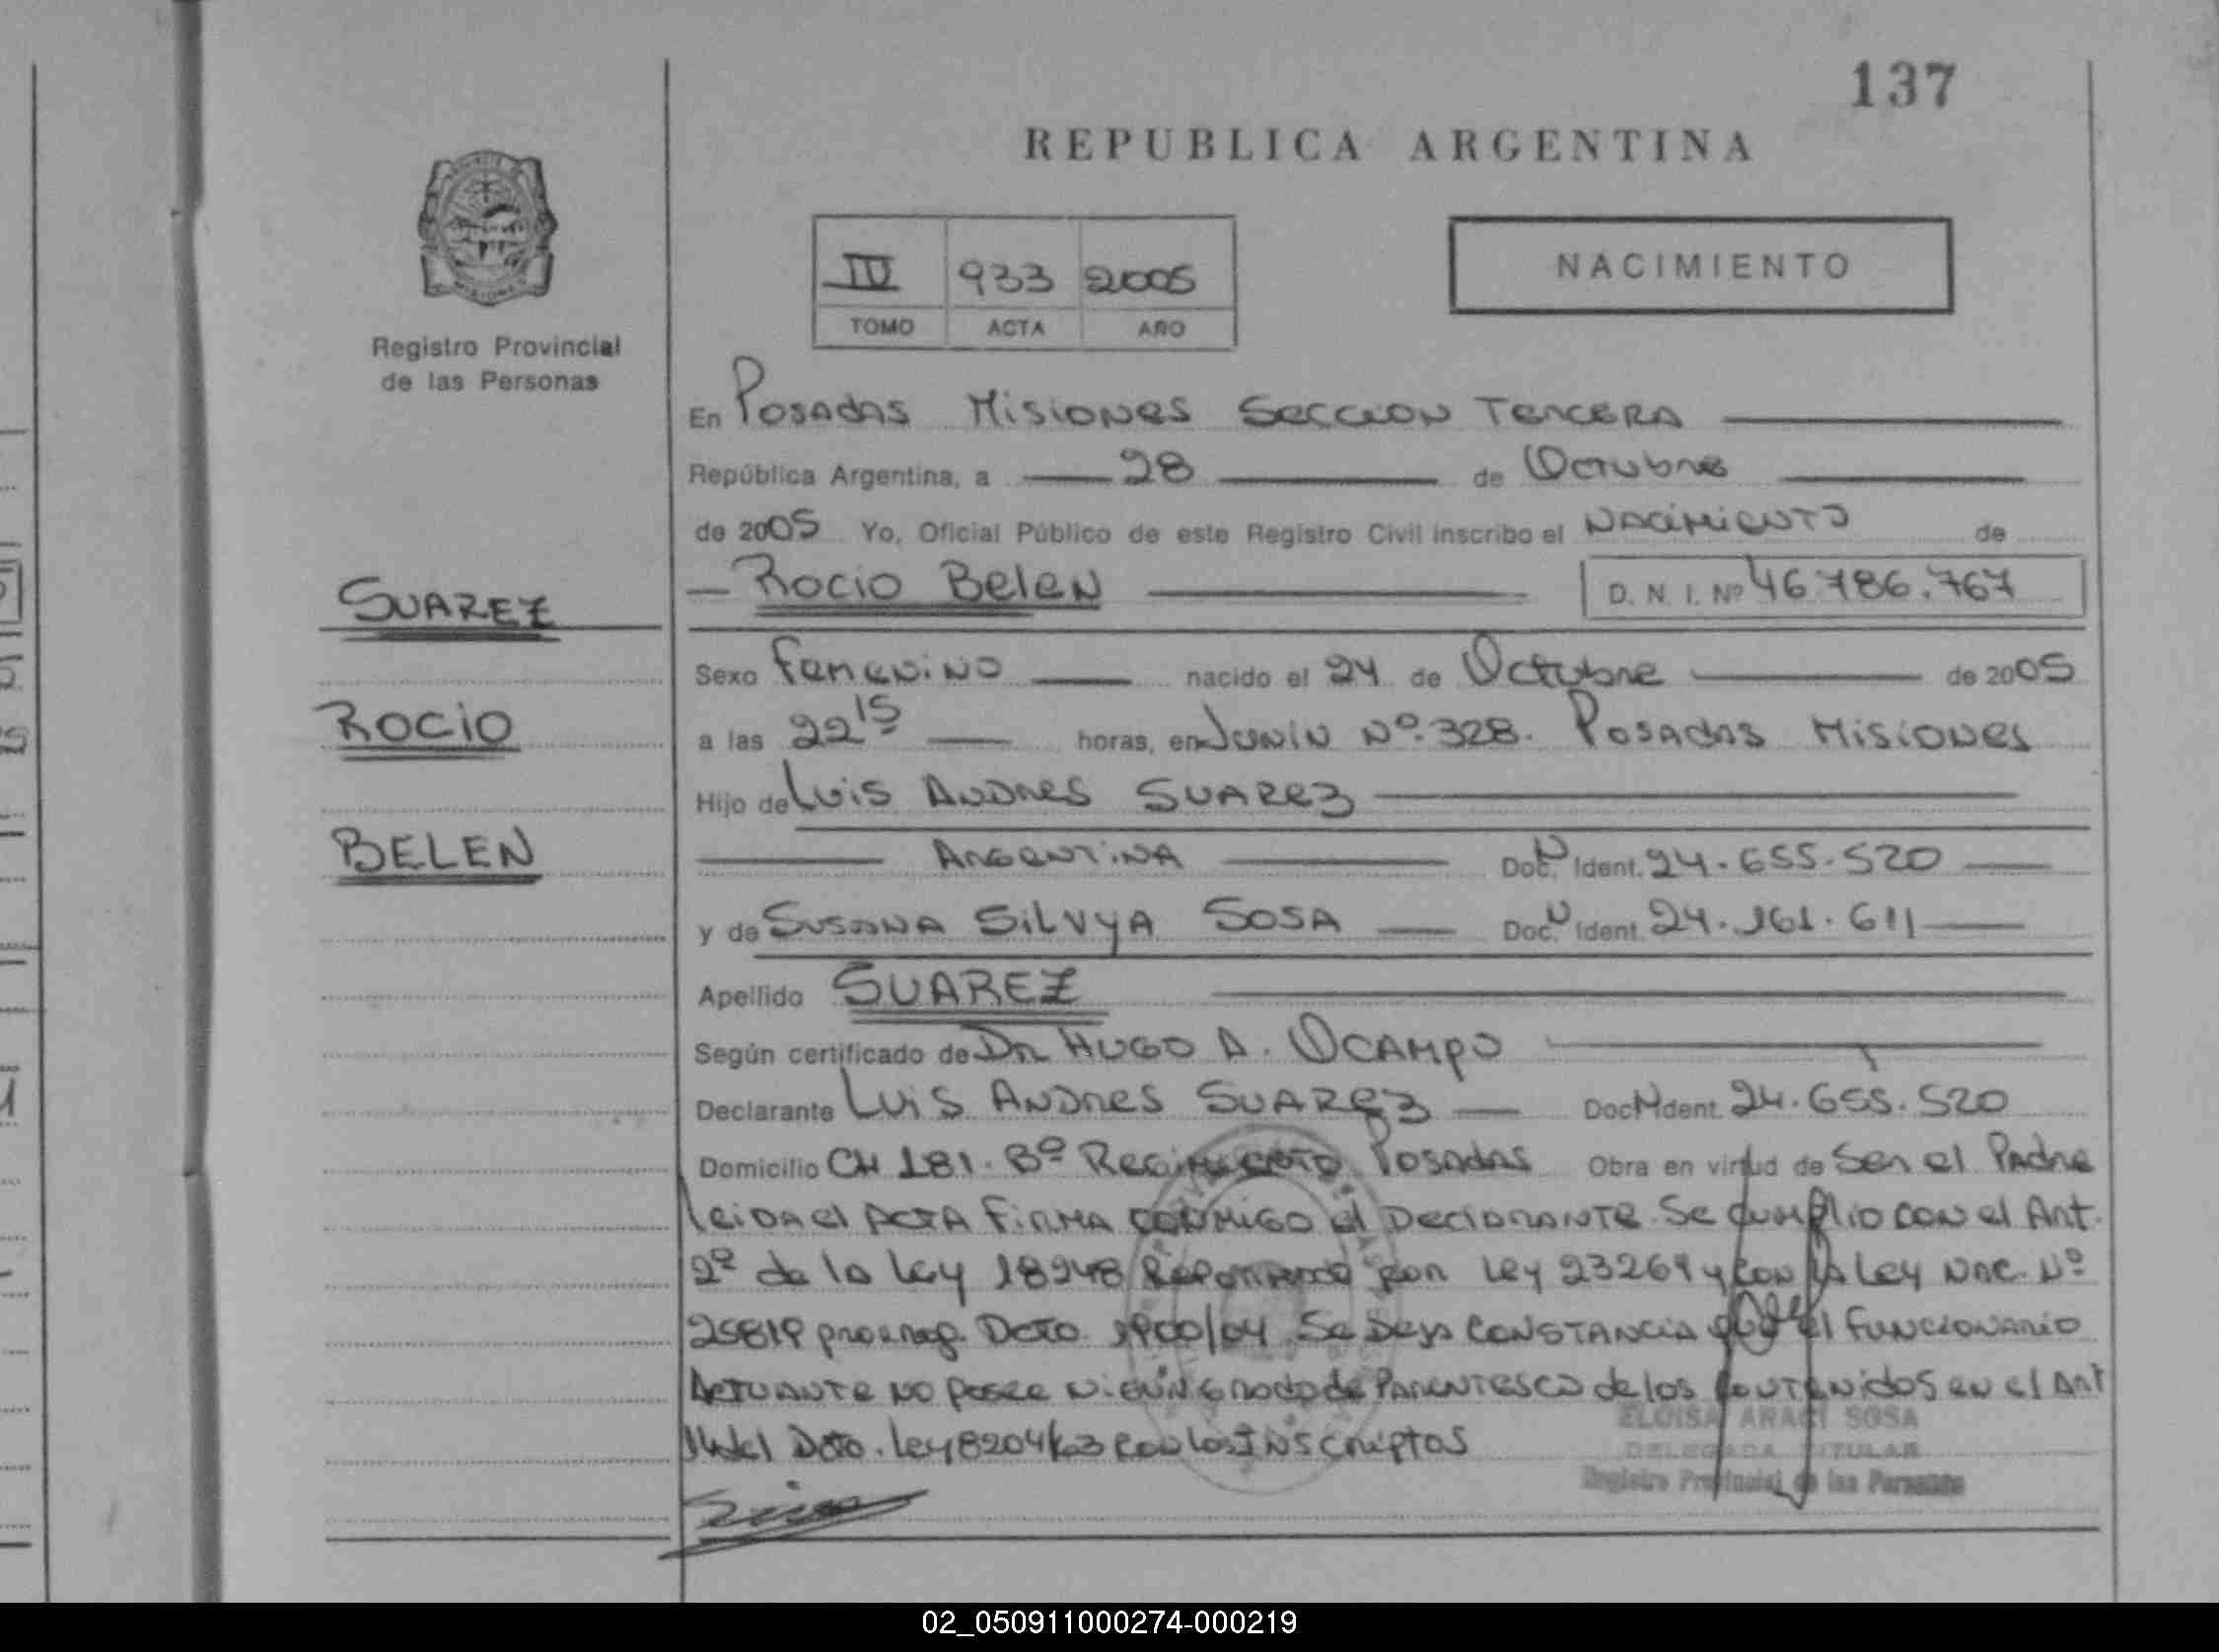 137
REPUBLICA ARGENTINA
NACIMIENTO
III 933 2005
TOMO ACTA AÑO
Registro Provincial
de las Personas
SUAREZ
ROCIO
BELEN
En Posadas Misiones Seccion Tercera
República Argentina, a 28 de Octubre
de 2005 Yo, Oficial Público de este Registro Civil inscribo el Nacimiento de
Rocio Belen D. N. I. Nº 46.786.767
Sexo Femenino nacido el 24 de Octubre de 2005
a las 22 15 horas, en Junin Nº 328. Posadas Misiones
Hijo de Luis Andres Suarez
Argentina Doc. N Ident. 24.655.520
y de Susana Silvya Sosa Doc. N Ident. 24.161.611
Apellido SUAREZ
Según certificado de Dr Hugo A. Ocampo
Declarante Luis Andres Suarez Doc N Ident. 24.655.520
Domicilio CH 181. Bº Regimiento Posadas Obra en virtud de Ser el Padre
leida el Acta Firma conmigo el Declarante. Se cumplio con el Art.
2º de la Ley 18248 Reformado por Ley 23264 y con la Ley Nac. Nº
25819 prorrog. Dcto 1900/04 Se Deja Constancia que el Funcionario
Actuante no posee ningun grado de Parentesco de los contenidos en el Art
14 del Dcto. Ley 8204/63 con los Inscriptos
ELOISA ARACI SOSA
DELEGADA TITULAR
Registro Provincial de las Personas
02_050911000274-000219